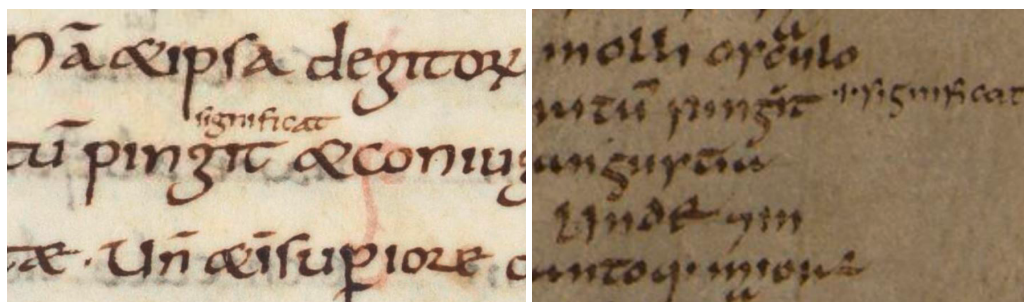 Nā &ipsa degitorx
significat
tū pingit &coniug
tae · Un̄ &īsupiore
molli osculo
nitū pingit ·i· significat
angustiā
Unde